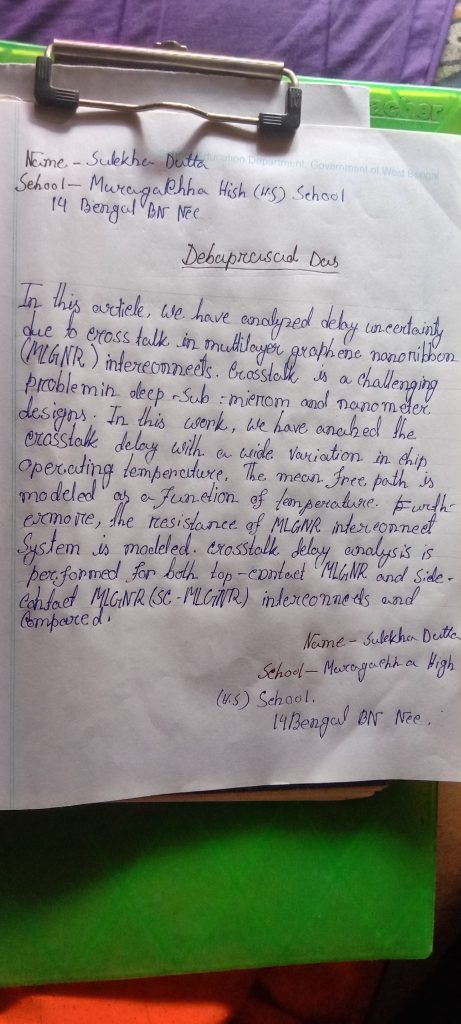 Name - Sulekha Dutta
Education Department, Government of West Bengal
School - Muragakhha Hish (H.S) School
14 Bengal BN Nec
Debaprasad Das
In this article, we have analyzed delay uncertainty
due to cross talk in multilayer graphene nanoribbon
(MLGNR) interconnects. Crosstalk is a challenging
problemin deep-sub-microm and nanometer
designs. In this work, we have anakzed the
crosstalk delay with a wide variation in chip
operating temperature. The mean free path is
modeled as a function of temperature. Furth-
ermore, the resistance of MLGNR interconnect
System is modeled. crosstalk delay analysis is
performed for both top-contact MLGNR and side-
contact MLGNR (SC-MLGNR) interconnects and
Compared.
Name - Sulekha Dutta
School - Muragachha High
(H.S) School.
14 Bengal BN Nec.